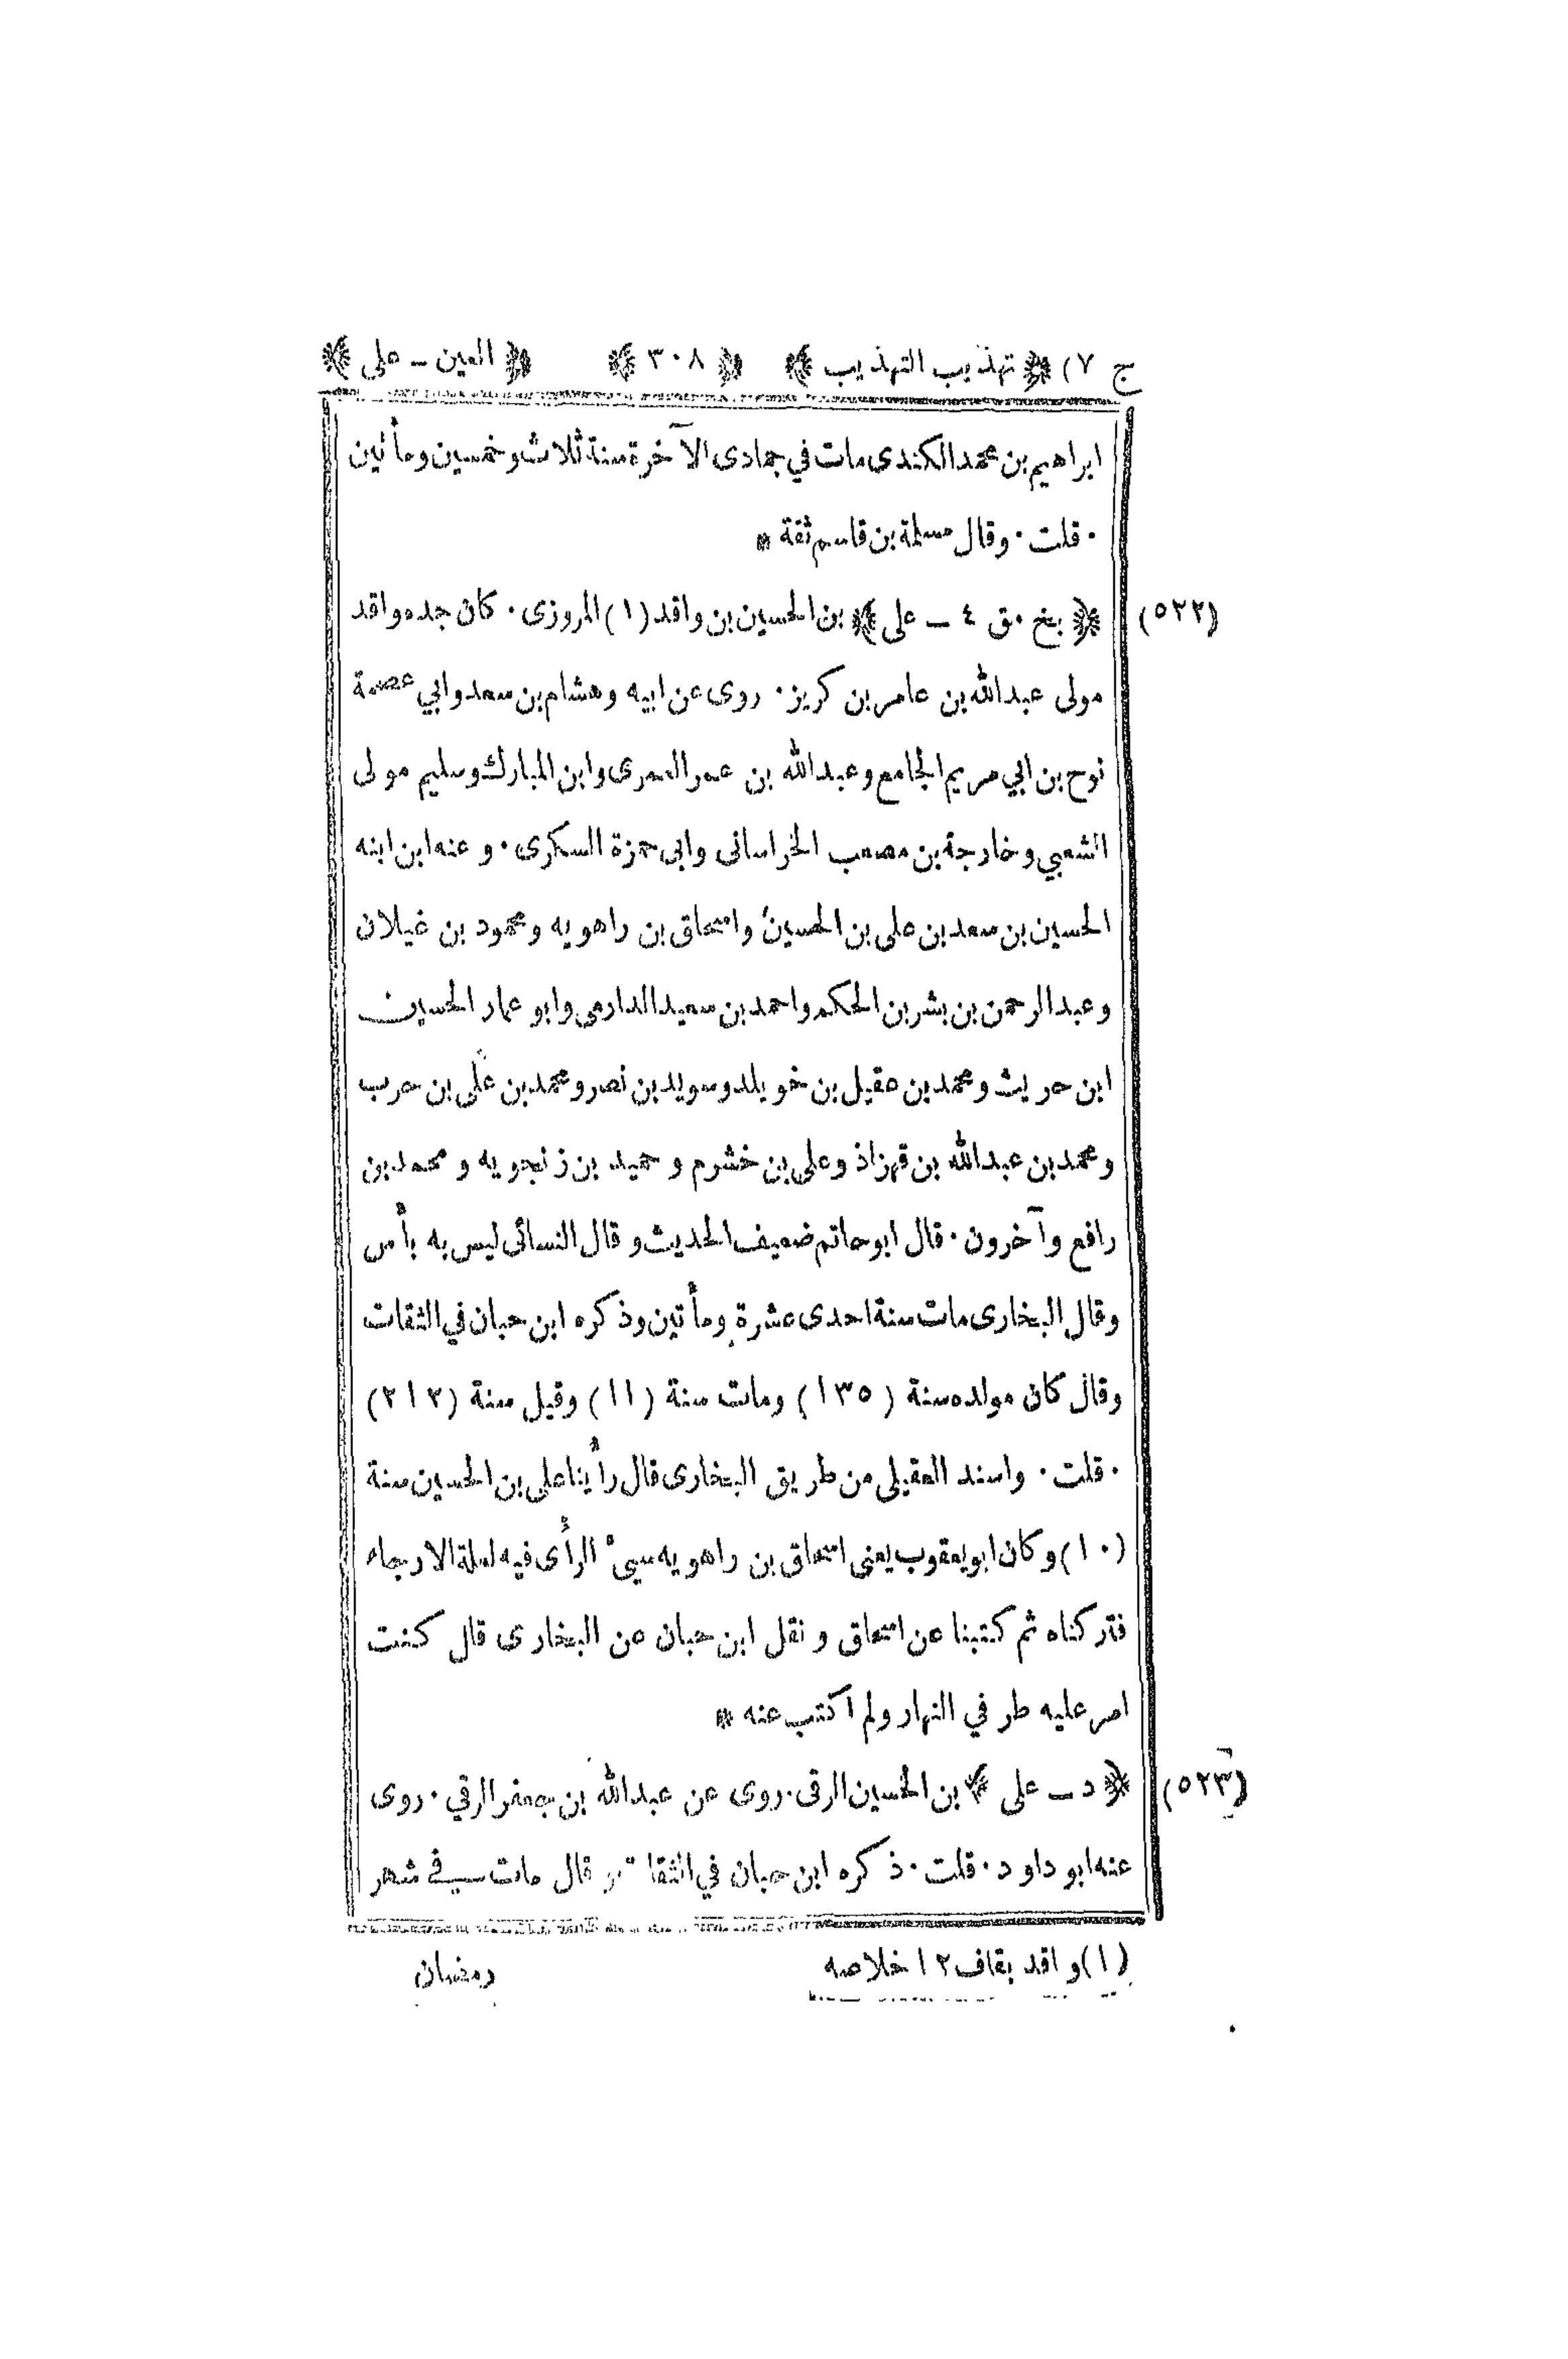 ج ٧) ﴿ تهذيب التهذيب ﴾ ﴿ ٣٠٨ ﴾ ﴿ العين ـ على ﴾
ابراهيم بن محمد الكندى مات في جمادى الآخرة سنة ثلاث وخمسين ومأ تين
٠ قلت ٠ وقال مسلمة بن قاسم ثقة *
(٥٢٢) ﴿ بخ ٠ ق ٤ ـ على ﴾ بن الحسين بن واقد (١) المروزى ٠ كان جده واقد
مولى عبدالله بن عامر بن كريز ٠ روى عن ابيه وهشام بن سعد وابي عصمة
نوح بن ابي مريم الجامع وعبدالله بن عمر العمرى وابن المبارك وسليم مولى
الشعبي وخارجة بن مصعب الخراسانى وابى حمزة السكرى ٠ وعنه ابن ابنه
الحسين بن سعد بن على بن الحسين واسحاق بن راهويه ومحمود بن غيلان
وعبد الرحمن بن بشر بن الحكم واحمد بن سعيد الدارمي وابو عمار الحسين
ابن حريث ومحمد بن عقيل بن خويلد وسويد بن نصر ومحمد بن على بن حرب
ومحمد بن عبدالله بن قهزاذ وعلى بن خشرم وحميد بن زنجويه ومحمد بن
رافع وآخرون ٠ قال ابو حاتم ضعيف الحديث وقال النسائى ليس به بأس
وقال البخارى مات سنة احدى عشرة ومأ تين وذكره ابن حبان في الثقات
وقال كان مولده سنة (١٣٥) ومات سنة (١١) وقيل سنة (٢١٢)
٠ قلت ٠ واسند العقيلى من طريق البخارى قال رأينا على بن الحسين سنة
(١٠) وكان ابو يعقوب يعنى اسحاق بن راهويه سيئ الرأى فيه لعلة الارجاء
فتركناه ثم كتبنا عن اسحاق ونقل ابن حبان عن البخارى قال كنت
امر عليه طرفي النهار ولم اكتب عنه *
(٥٢٣) ﴿ د ـ على ﴾ بن الحسين الرقى ٠ روى عن عبدالله بن جعفر الرقي ٠ روى
عنه ابو داود ٠ قلت ٠ ذكره ابن حبان في الثقات وقال مات في شهر
(١) واقد بقاف ١٢ خلاصه
رمضان